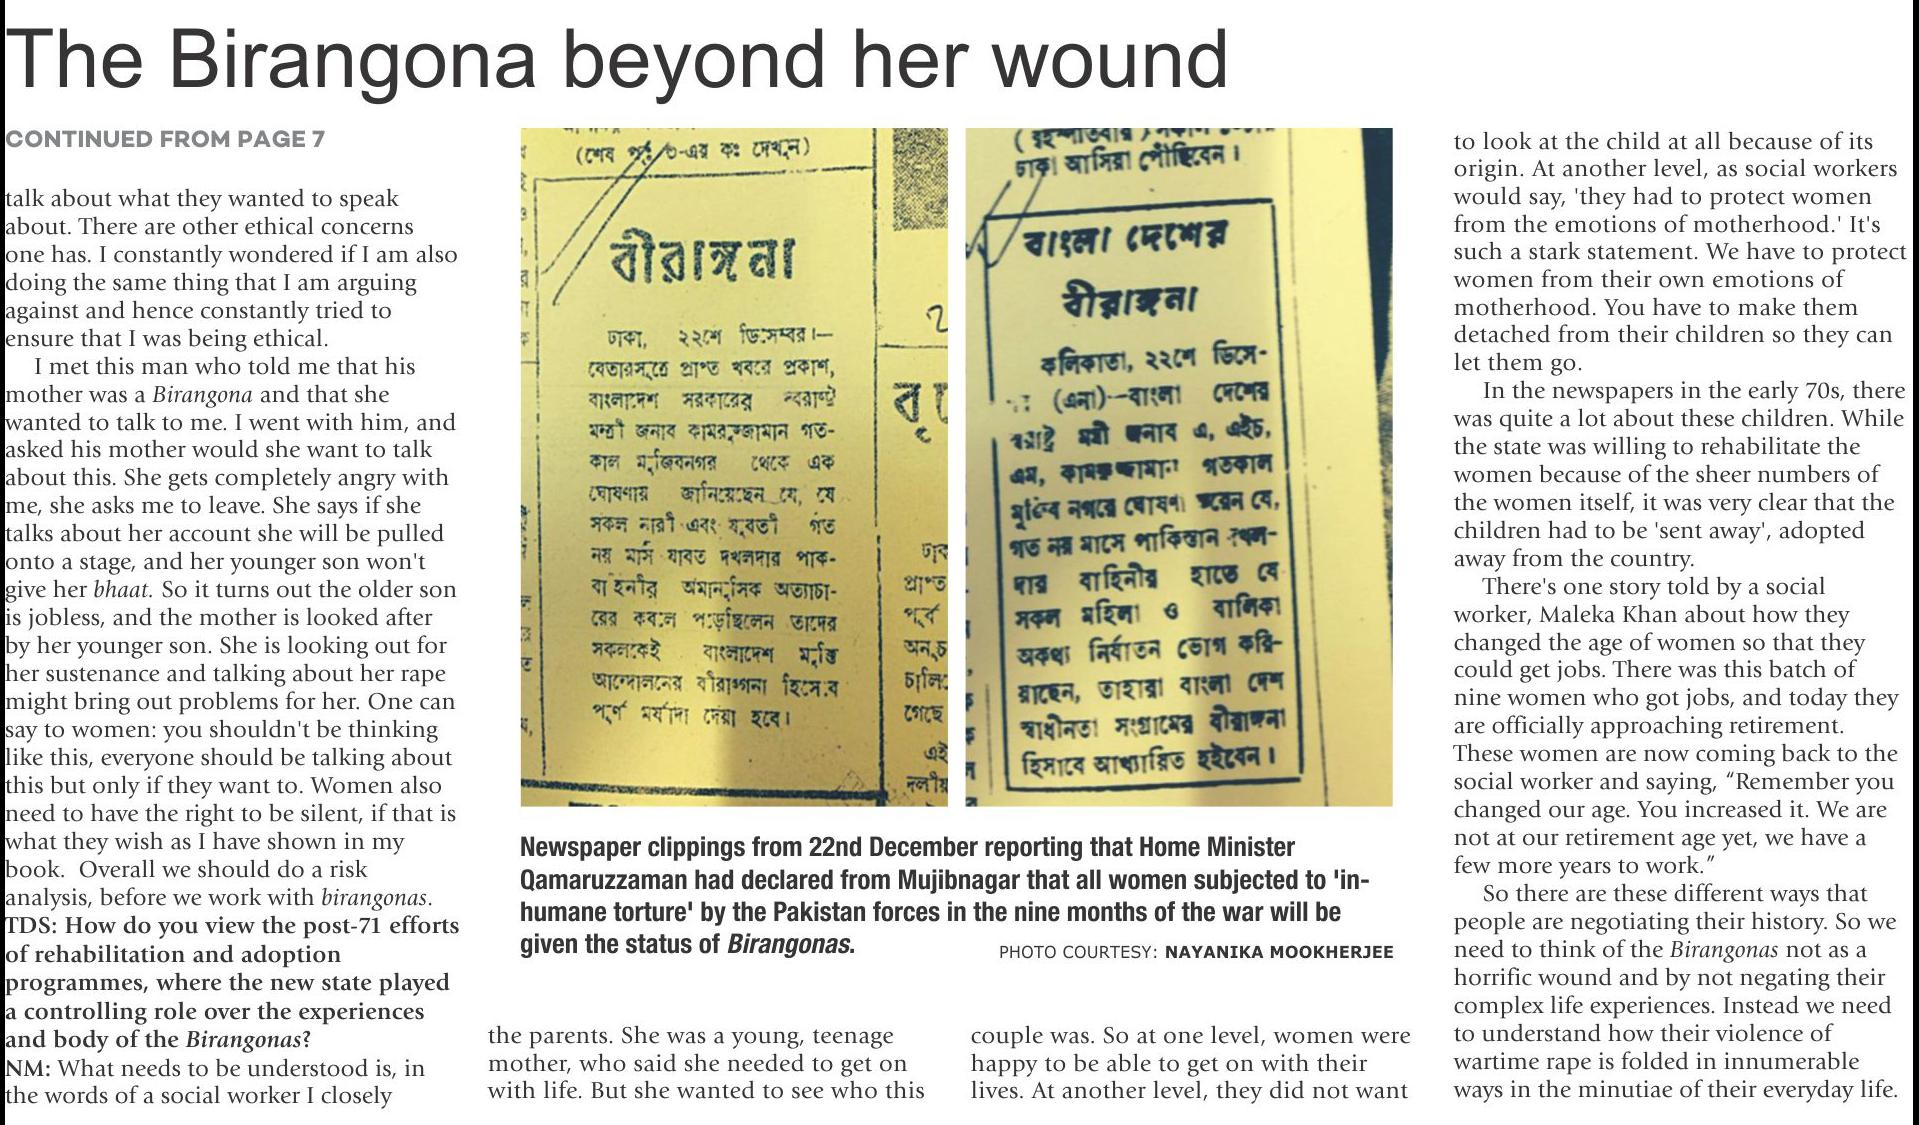 The Birangona beyond her wound
CONTINUED FROM PAGE 7
talk about what they wanted to speak
about. There are other ethical concerns
one has. I constantly wondered if I am also
doing the same thing that I am arguing
against and hence constantly tried to
ensure that I was being ethical.
I met this man who told me that his
mother was a Birangona and that she
wanted to talk to me. I went with him, and
asked his mother would she want to talk
about this. She gets completely angry with
me, she asks me to leave. She says if she
talks about her account she will be pulled
onto a stage, and her younger son won't
give her bhaat. So it turns out the older son
is jobless, and the mother is looked after
by her younger son. She is looking out for
her sustenance and talking about her rape
might bring out problems for her. One can
say to women: you shouldn't be thinking
like this, everyone should be talking about
this but only if they want to. Women also
need to have the right to be silent, if that is
what they wish as I have shown in my
book. Overall we should do a risk
analysis, before we work with birangonas.
TDS: How do you view the post-71 efforts
of rehabilitation and adoption
programmes, where the new state played
a controlling role over the experiences
and body of the Birangonas?
NM: What needs to be understood is, in
the words of a social worker I closely
(শেষ পৃঃ ৩-এর কঃ দেখুন)
বীরাঙ্গনা
ঢাকা, ২২শে ডিসেম্বর।—
বেতারসূত্রে প্রাপ্ত খবরে প্রকাশ,
বাংলাদেশ সরকারের স্বরাষ্ট্র
মন্ত্রী জনাব কামরুজ্জামান গত-
কাল মুজিবনগর থেকে এক
ঘোষণায় জানিয়েছেন যে, যে
সকল নারী এবং যুবতী গত
নয় মাস যাবত দখলদার পাক-
বাহিনীর অমানুসিক অত্যাচা-
রের কবলে পড়েছিলেন তাদের
সকলকেই বাংলাদেশ মুক্তি
আন্দোলনের বীরাঙ্গনা হিসেবে
পূর্ণ মর্যাদা দেয়া হবে।
ঢাকা আসিয়া পৌঁছিবেন।
বাংলা দেশের
বীরাঙ্গনা
কলিকাতা, ২২শে ডিসে-
(এনা)—বাংলা দেশের
স্বরাষ্ট্র মন্ত্রী জনাব এ, এইচ,
এম, কামরুজ্জামান গতকাল
মুজিব নগরে ঘোষণা করেন যে,
গত নয় মাসে পাকিস্তান দখল-
দার বাহিনীর হাতে যে
সকল মহিলা ও বালিকা
অকথ্য নির্যাতন ভোগ করি-
য়াছেন, তাহারা বাংলা দেশ
স্বাধীনতা সংগ্রামের বীরাঙ্গনা
হিসাবে আখ্যায়িত হইবেন।
Newspaper clippings from 22nd December reporting that Home Minister
Qamaruzzaman had declared from Mujibnagar that all women subjected to 'in-
humane torture' by the Pakistan forces in the nine months of the war will be
given the status of Birangonas.
PHOTO COURTESY: NAYANIKA MOOKHERJEE
the parents. She was a young, teenage
mother, who said she needed to get on
with life. But she wanted to see who this
couple was. So at one level, women were
happy to be able to get on with their
lives. At another level, they did not want
to look at the child at all because of its
origin. At another level, as social workers
would say, 'they had to protect women
from the emotions of motherhood.' It's
such a stark statement. We have to protect
women from their own emotions of
motherhood. You have to make them
detached from their children so they can
let them go.
In the newspapers in the early 70s, there
was quite a lot about these children. While
the state was willing to rehabilitate the
women because of the sheer numbers of
the women itself, it was very clear that the
children had to be 'sent away', adopted
away from the country.
There's one story told by a social
worker, Maleka Khan about how they
changed the age of women so that they
could get jobs. There was this batch of
nine women who got jobs, and today they
are officially approaching retirement.
These women are now coming back to the
social worker and saying, “Remember you
changed our age. You increased it. We are
not at our retirement age yet, we have a
few more years to work.”
So there are these different ways that
people are negotiating their history. So we
need to think of the Birangonas not as a
horrific wound and by not negating their
complex life experiences. Instead we need
to understand how their violence of
wartime rape is folded in innumerable
ways in the minutiae of their everyday life.